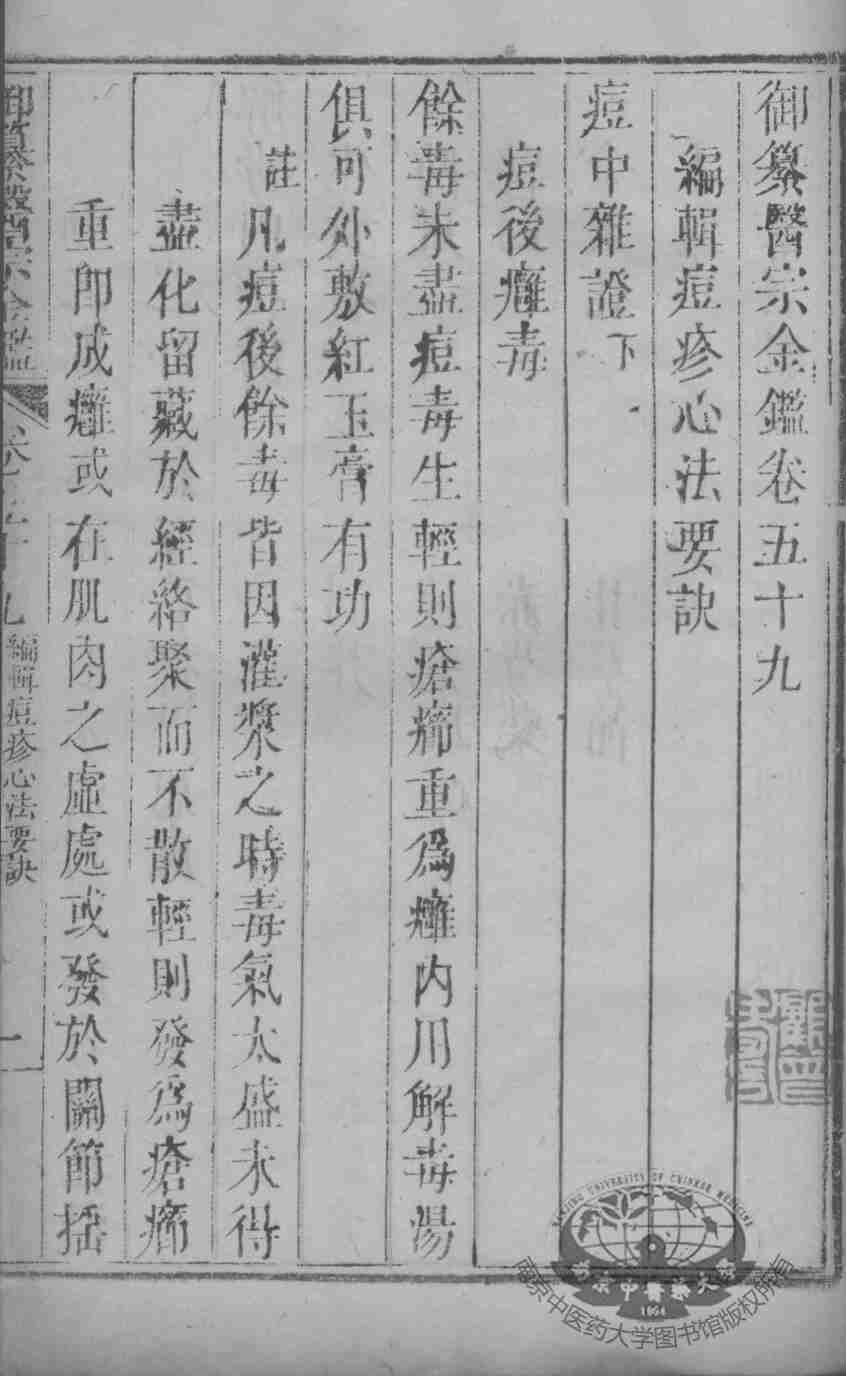 御纂醫宗金鑑卷五十九
編輯痘疹心法要訣
痘中雜證下
痘後癰毒
餘毒未盡痘毒生輕則瘡癤重爲癰内用解毒湯
俱可外敷紅玉膏有功
註凡痘後餘毒皆因灌漿之時毒氣太盛未得
盡化留藏於經絡聚而不散輕則發爲瘡癤
重即成癰或在肌肉之虛處或發於關節搖
御纂醫宗金鑑 卷五十九 編輯痘疹心法要訣 一
NANJING UNIVERSITY OF CHINESE MEDICINE
南京中醫藥大學
1954
南京中医药大学图书馆版权所有